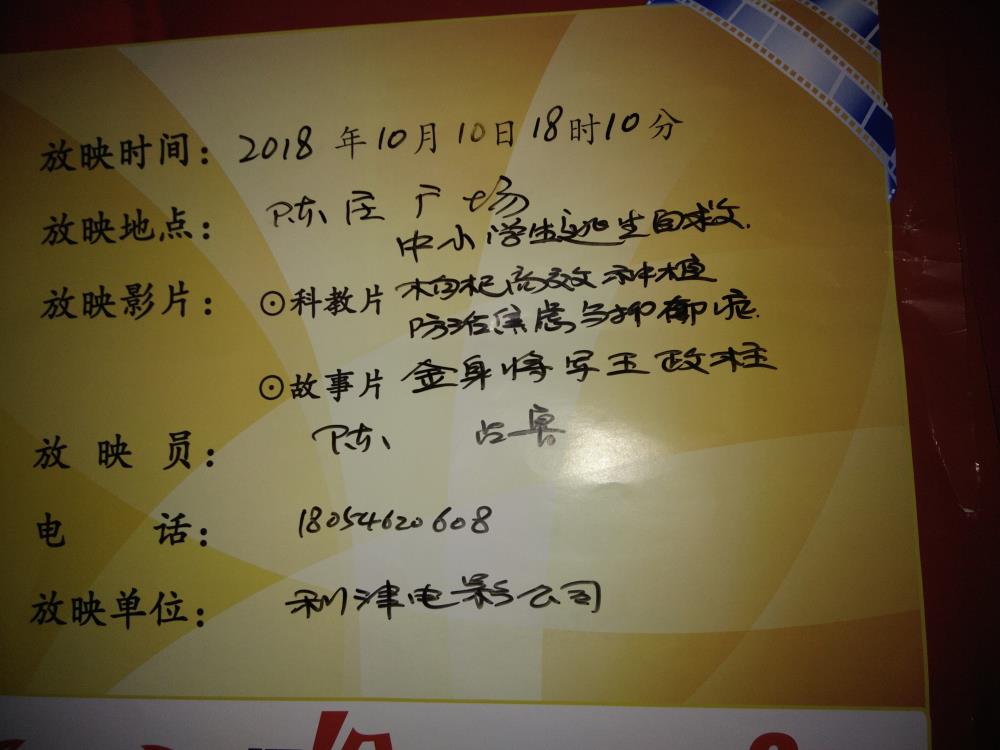 放映时间：2018年10月10日18时10分
放映地点：陈庄广场
中小学生逃生自救.
放映影片：⊙科教片 枸杞高效种植
防治焦虑与抑郁症.
⊙故事片 金身将军王政柱
放映员：陈占
电话：18054620608
放映单位：利津电影公司